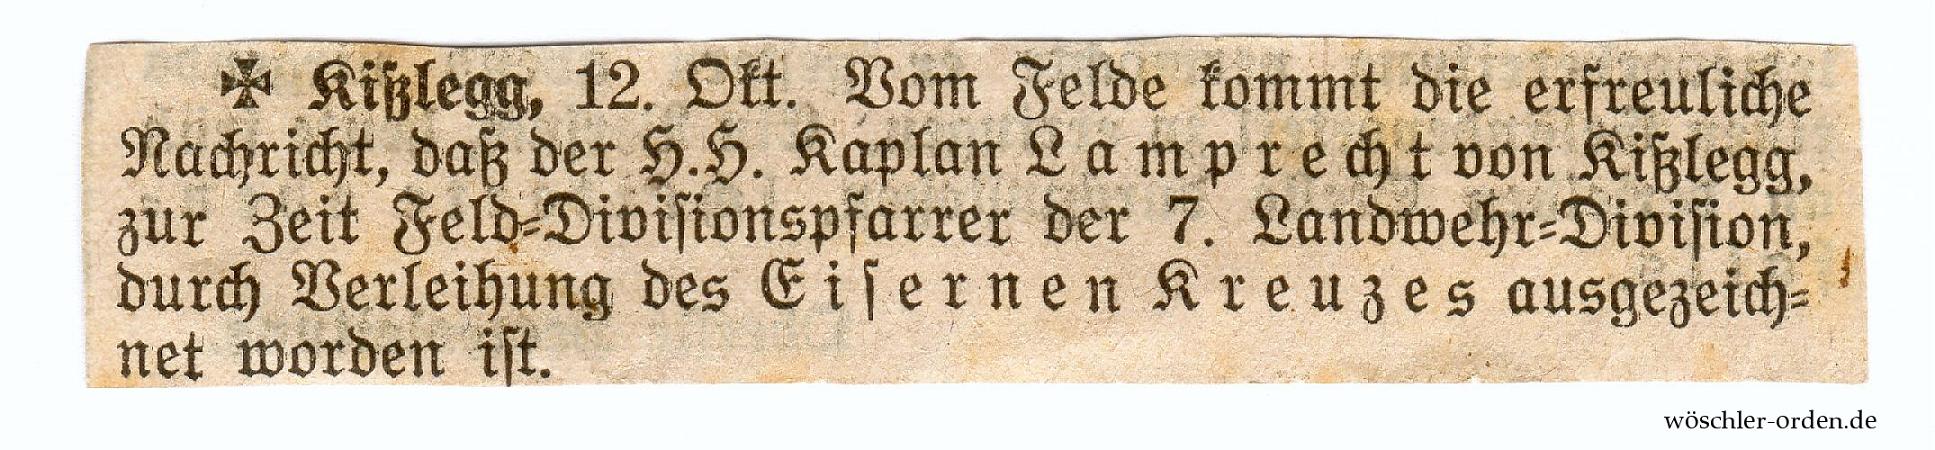 ✠ Kißlegg, 12. Okt. Vom Felde kommt die erfreuliche
Nachricht, daß der H.H. Kaplan Lamprecht von Kißlegg,
zur Zeit Feld-Diviſionspfarrer der 7. Landwehr-Diviſion,
durch Verleihung des Eiſernen Kreuzes ausgezeich-
net worden iſt.
wöschler-orden.de